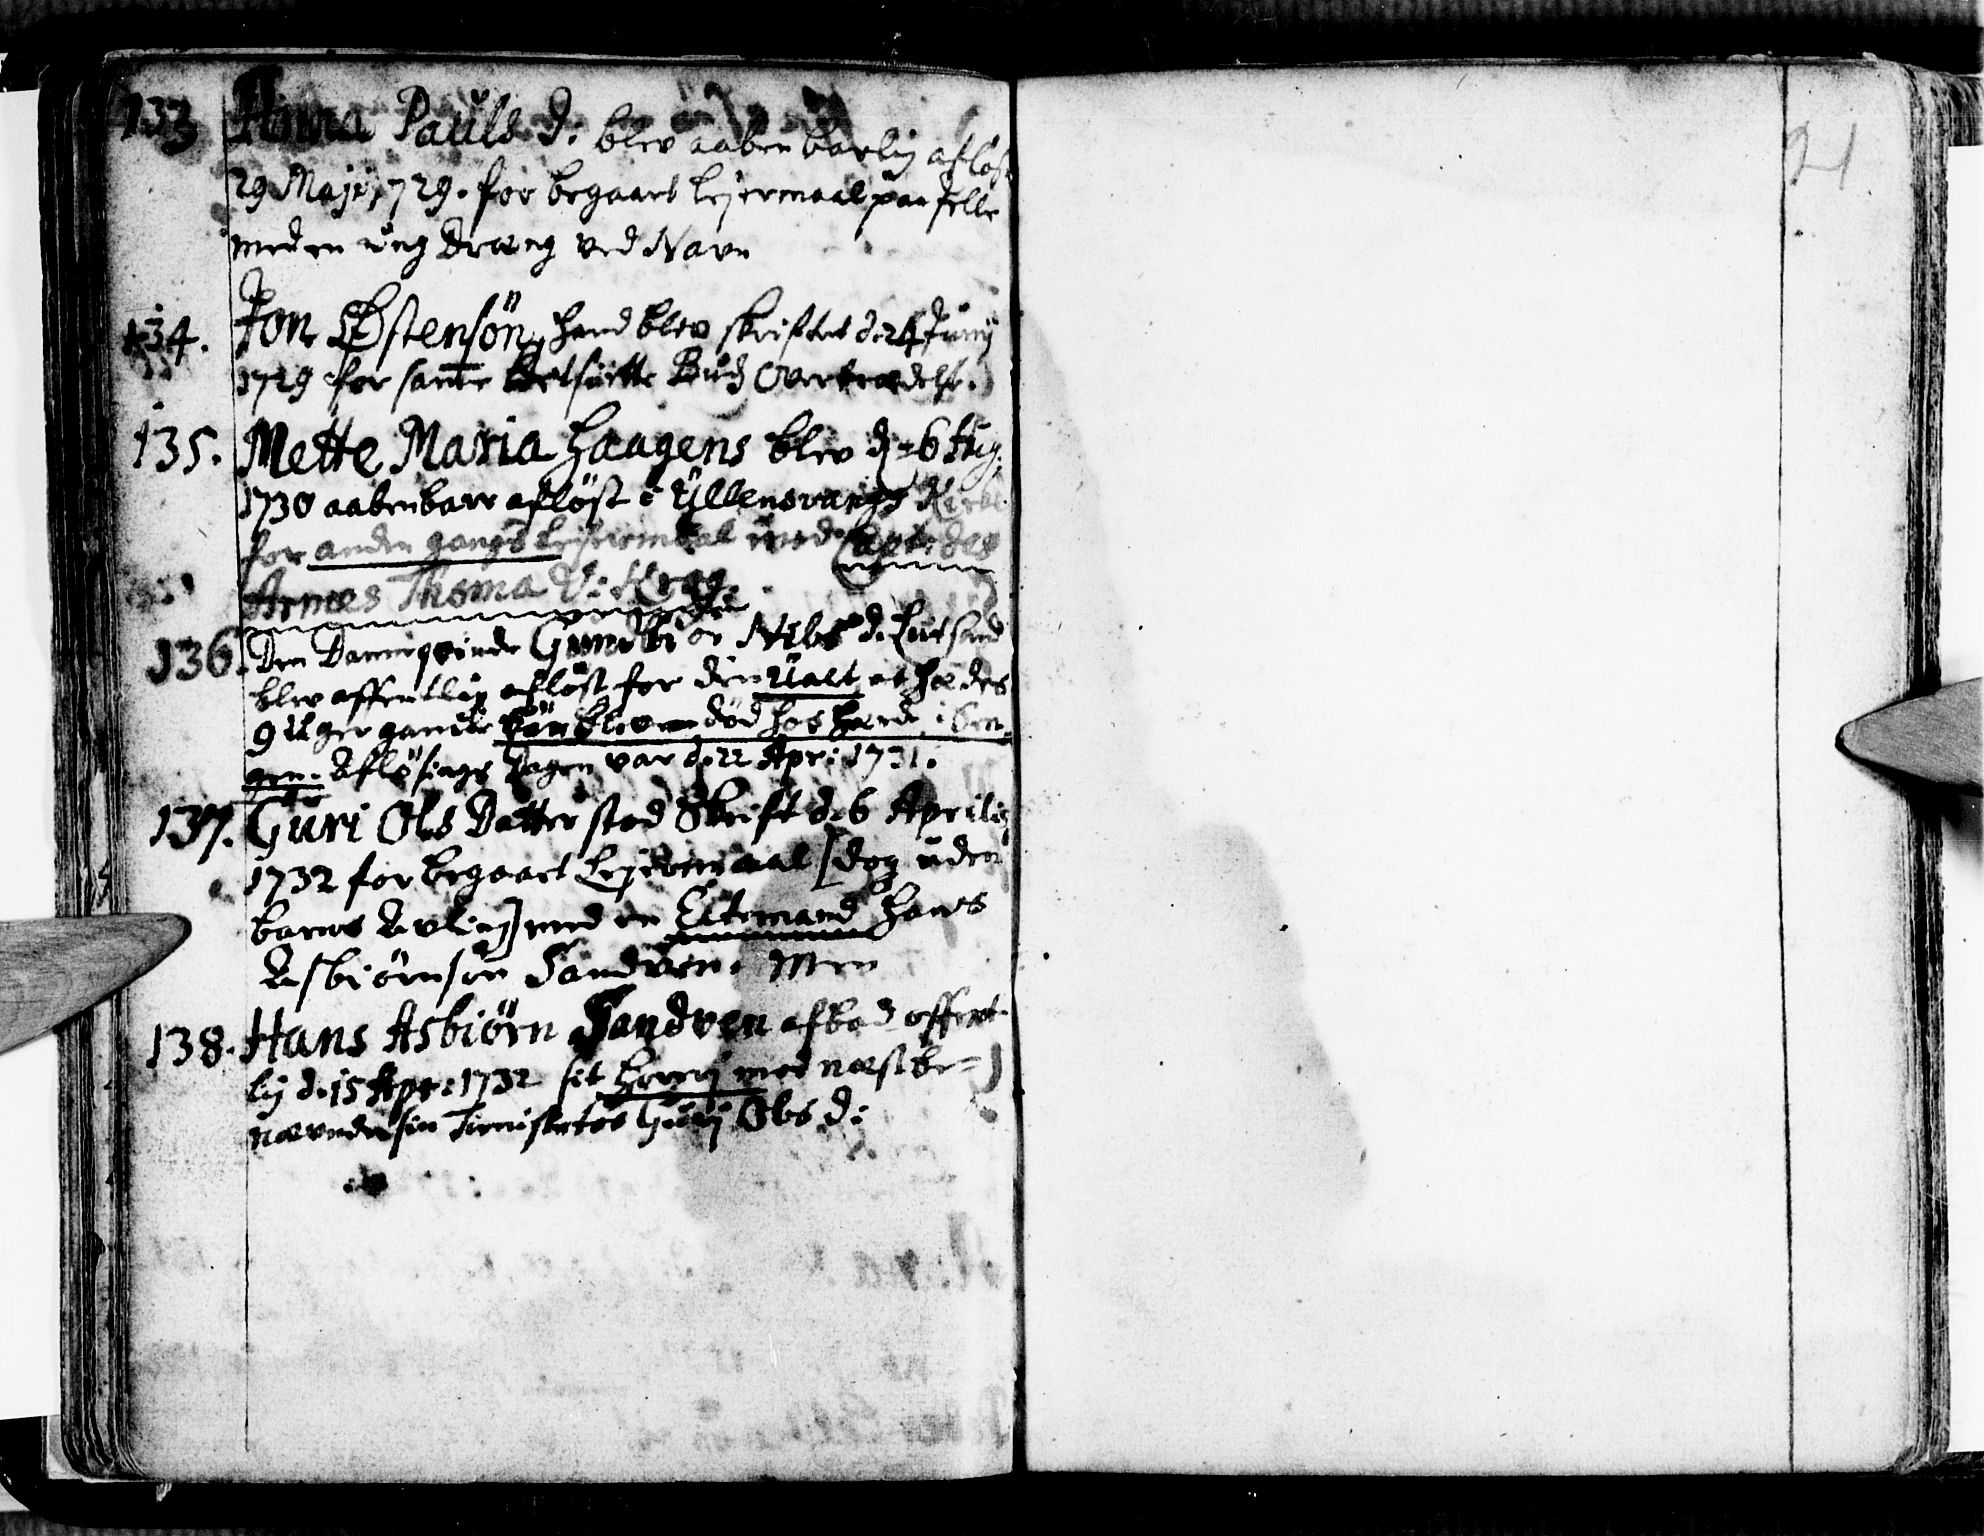 133 Anna Pauls d: blev aabenbarlig afløst
29 Maji 1729. for begaaet Lejermaal paa felle
med en ung Dreng ved Navn
134. Jon Østensön, hand blev skriftet d. 24 Junij
1729 for samme Buds Overtrædelse.
135. Mette Maria Haagens blev d. 6 Aug.
1730 aabenbare afløst i Ullensvangs Kirke
for anden gangs Lejermaal med
Thoma
136. Den Danneqvinde Gunbior Nils d.
blev offentlig afløst for den Ualt at hendes
død hos hende i Sen-
gen. Afløsnings Dagen var d. 22 Apr: 1731.
137. Guri Ols Datter stod Skrift d. 6 Aprilis
1732 for begaaet Lejermaal [dog uden
barns Avling] med en Ectemand Hans
Asbiørnsøn Sandven. Men
138. Hans Asbiörn Sandven afbad offent-
lig d. 15 Apr: 1732 sit Horerj med næstbe-
nævnde sin Tieniste tøs Gurj Ols d:
21